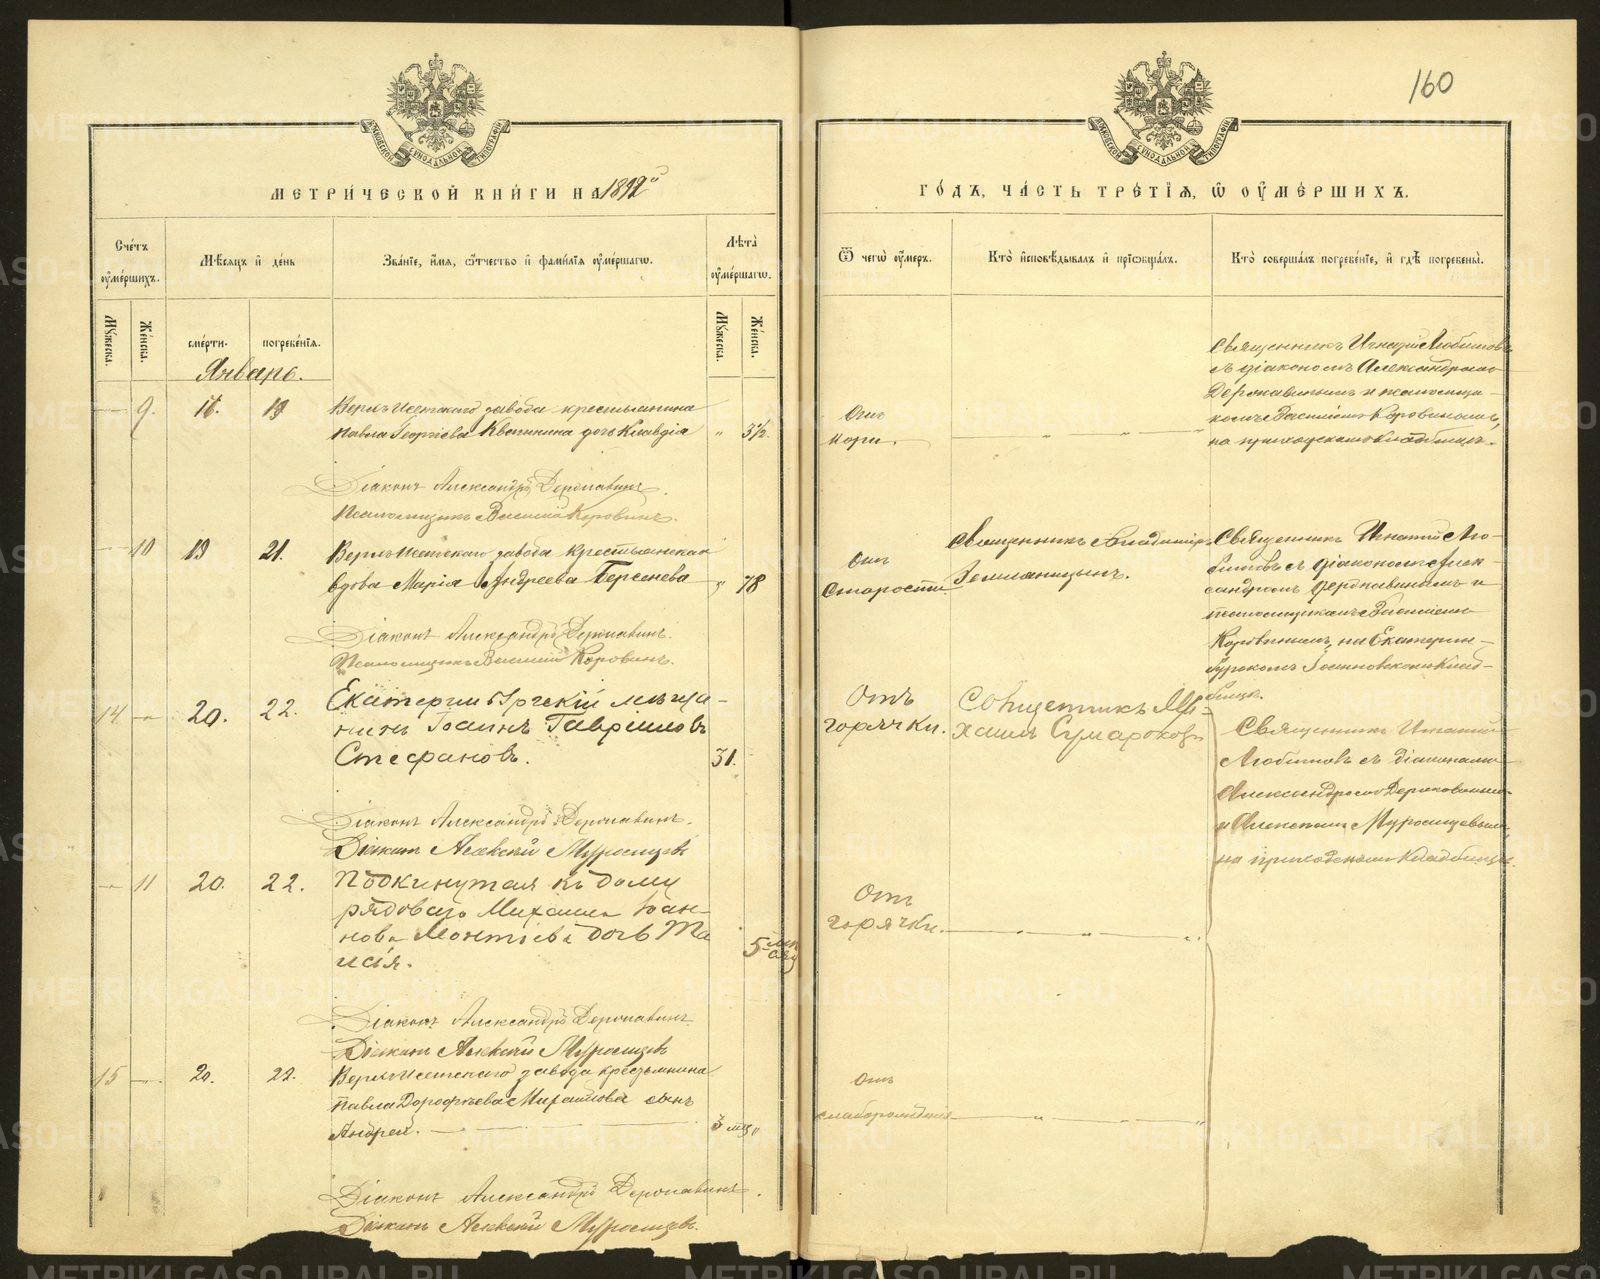 160
МЕТРИЧЕСКОЙ КНИГИ НА 1892й
ГОДЪ, ЧАСТЬ ТРЕТІЯ, Ѿ ОУМЕРШИХЪ.
Счетъ оумершихъ.
Мѣсяцъ и день
Званіе, имя, отчество и фамилія оумершагω.
Лѣта оумершагω.
Ѿ чегω оумеръ.
Кто исповѣдывалъ и пріобщалъ.
Кто совершалъ погребеніе, и гдѣ погребены.
Мужеска.
Женска.
смерти.
погребенія.
Мужеска.
Женска.
Январь.
9.
Верхъ-Исетскаго завода крестьянина
Павла Георгіева дочь Клавдія
3½
Отъ
кори.
Священникъ Игнатій Любимовъ
съ діакономъ Александромъ
Державинымъ и псаломщи-
комъ Василіемъ Коровинымъ,
на приходскомъ кладбищѣ.
Діаконъ Александръ Державинъ.
Псаломщикъ Василій Коровинъ.
10
19
21.
Верхъ-Исетскаго завода крестьянская
вдова Марія Андреева Берсенева
78
Отъ
старости.
Священникъ Владиміръ
Земляницынъ.
Священникъ Игнатій Лю-
бимовъ съ діакономъ Алек-
сандромъ Державинымъ и
псаломщикомъ Василіемъ
Коровинымъ, на Екатерин-
бургскомъ Іоанновскомъ клад-
бищѣ.
Діаконъ Александръ Державинъ.
Псаломщикъ Василій Коровинъ.
14
20.
22.
Екатеринбургскій мѣща-
нинъ Іоаннъ Гавріиловъ
Стефановъ.
31.
Отъ
горячки.
Священникъ Ми-
хаилъ Сумароковъ
Священникъ Игнатій
Любимовъ съ діаконами
Александромъ Державинымъ
и Алексіемъ
на приходскомъ кладбищѣ.
Діаконъ Александръ Державинъ.
Діаконъ Алексій
11
20.
22.
Подкинутая къ дому
рядоваго Михаила Іоан-
нова дочь Та
исія.
5 мѣ
сяц
Отъ
горячки.
Діаконъ Александръ Державинъ.
Діаконъ Алексій
15
20.
22.
Верхъ-Исетскаго завода крестьянина
Павла Дорофѣева Михайлова сынъ
Андрей.
3 мѣс.
Отъ
слаборожденія
Діаконъ Александръ Державинъ.
Діаконъ Алексій
METRIKI.GASO-URAL.RU